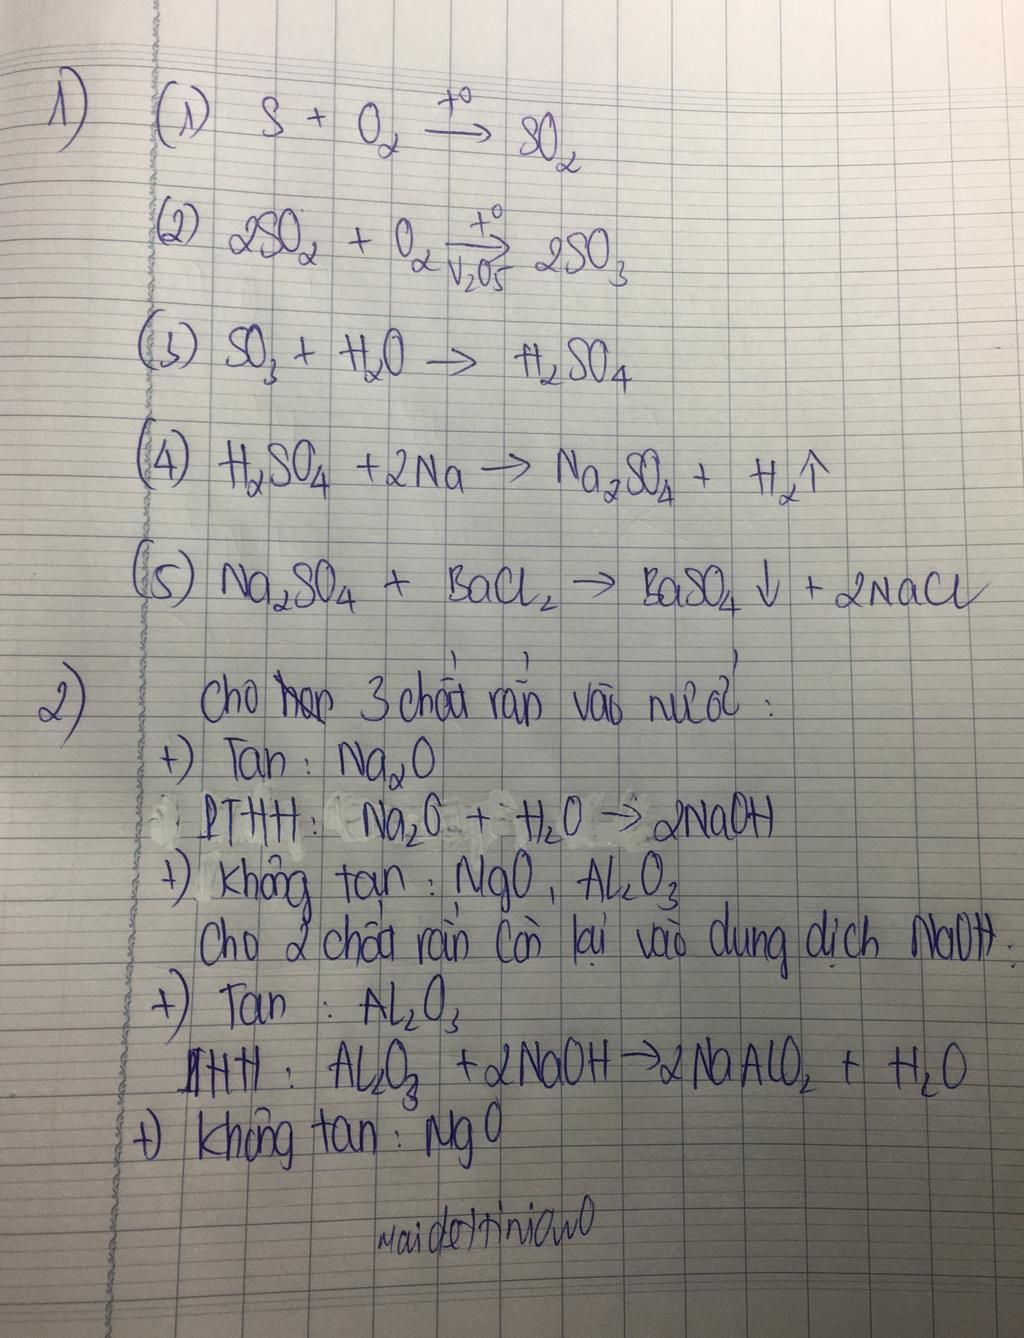 1) (1) S + O₂ →(t°) SO₂
(2) 2SO₂ + O₂ →(t°, V₂O₅) 2SO₃
(3) SO₃ + H₂O → H₂SO₄
(4) H₂SO₄ + 2Na → Na₂SO₄ + H₂↑
(5) Na₂SO₄ + BaCl₂ → BaSO₄↓ + 2NaCl
2) Cho 3 chất rắn vào nước:
+) Tan: Na₂O
PTHH: Na₂O + H₂O → 2NaOH
+) Không tan: MgO, Al₂O₃
Cho 2 chất rắn còn lại vào dung dịch NaOH:
+) Tan: Al₂O₃
PTHH: Al₂O₃ + 2NaOH → 2NaAlO₂ + H₂O
+) Không tan: MgO